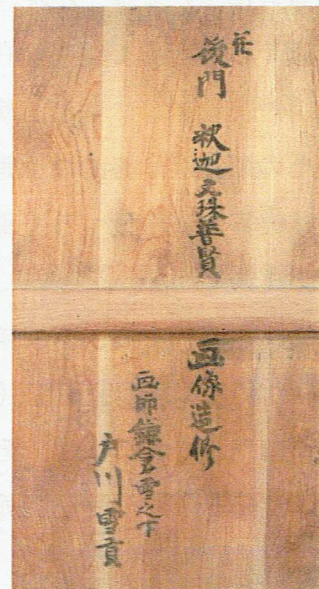 後門 釈迦文珠普賢
画像造修
画師鎌倉雪之下
戸川雪貢